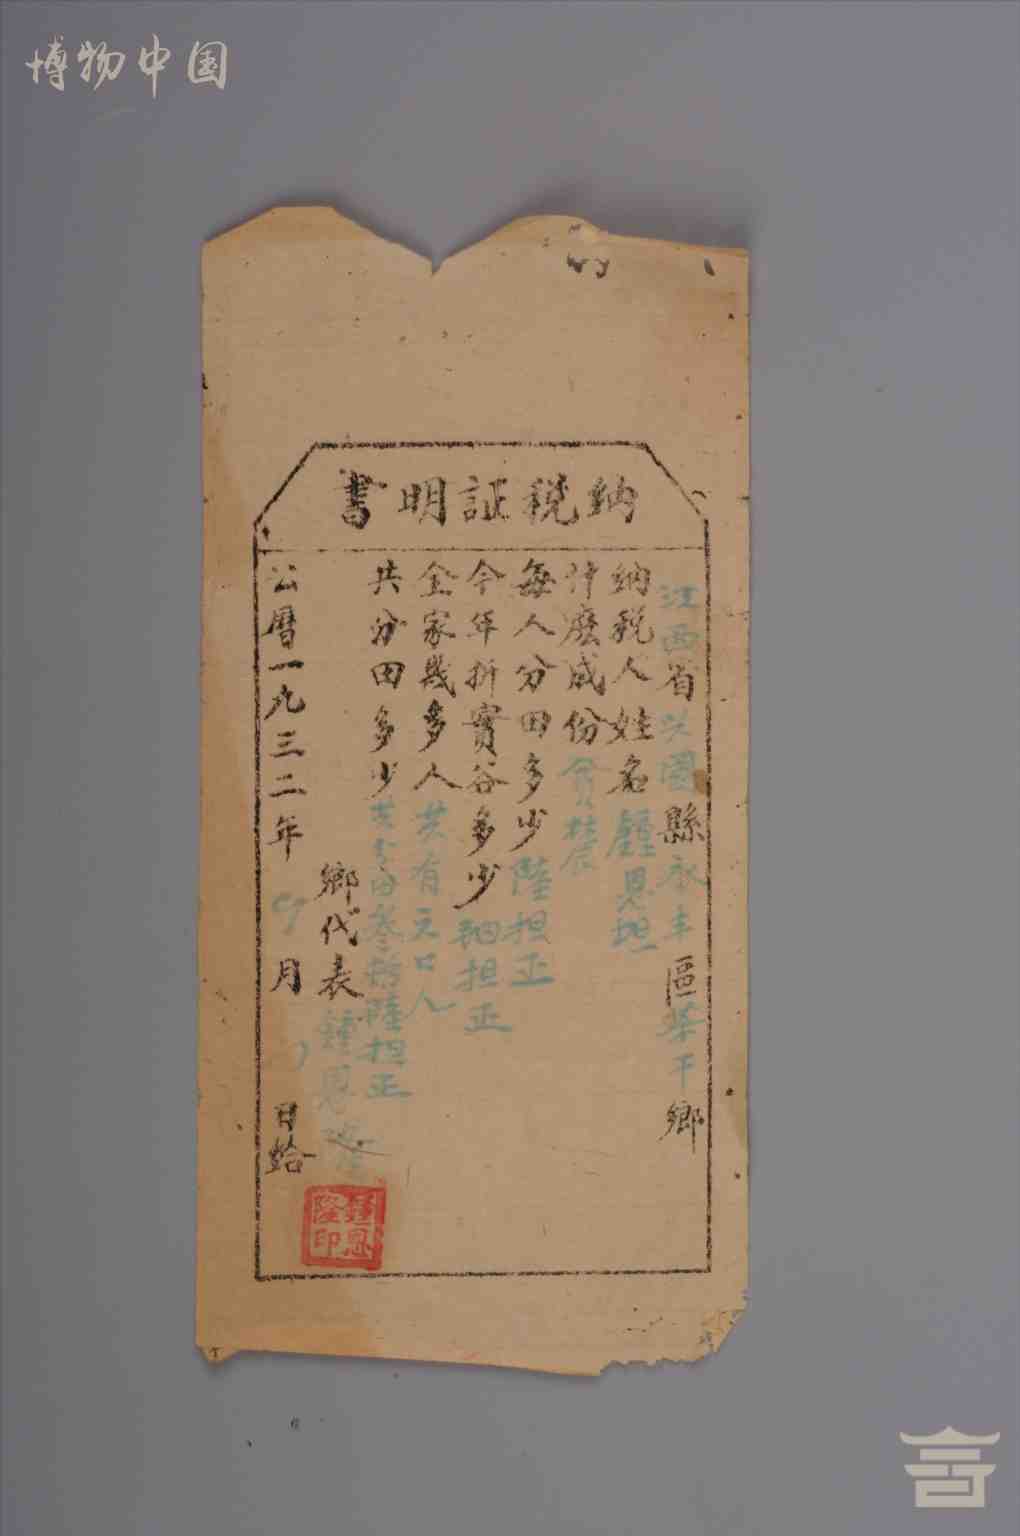 博物中国
納税証明書
江西省兴國縣永丰區茶干鄉
納税人姓名鍾恩坦
什麽成份貧農
每人分田多少陸担正
今年折實谷多少担正
全家幾多人共有六口人
共分田多少共分田叁拾陸担正
鄉代表鍾恩隆
公曆一九三二年月日給
鍾恩隆印